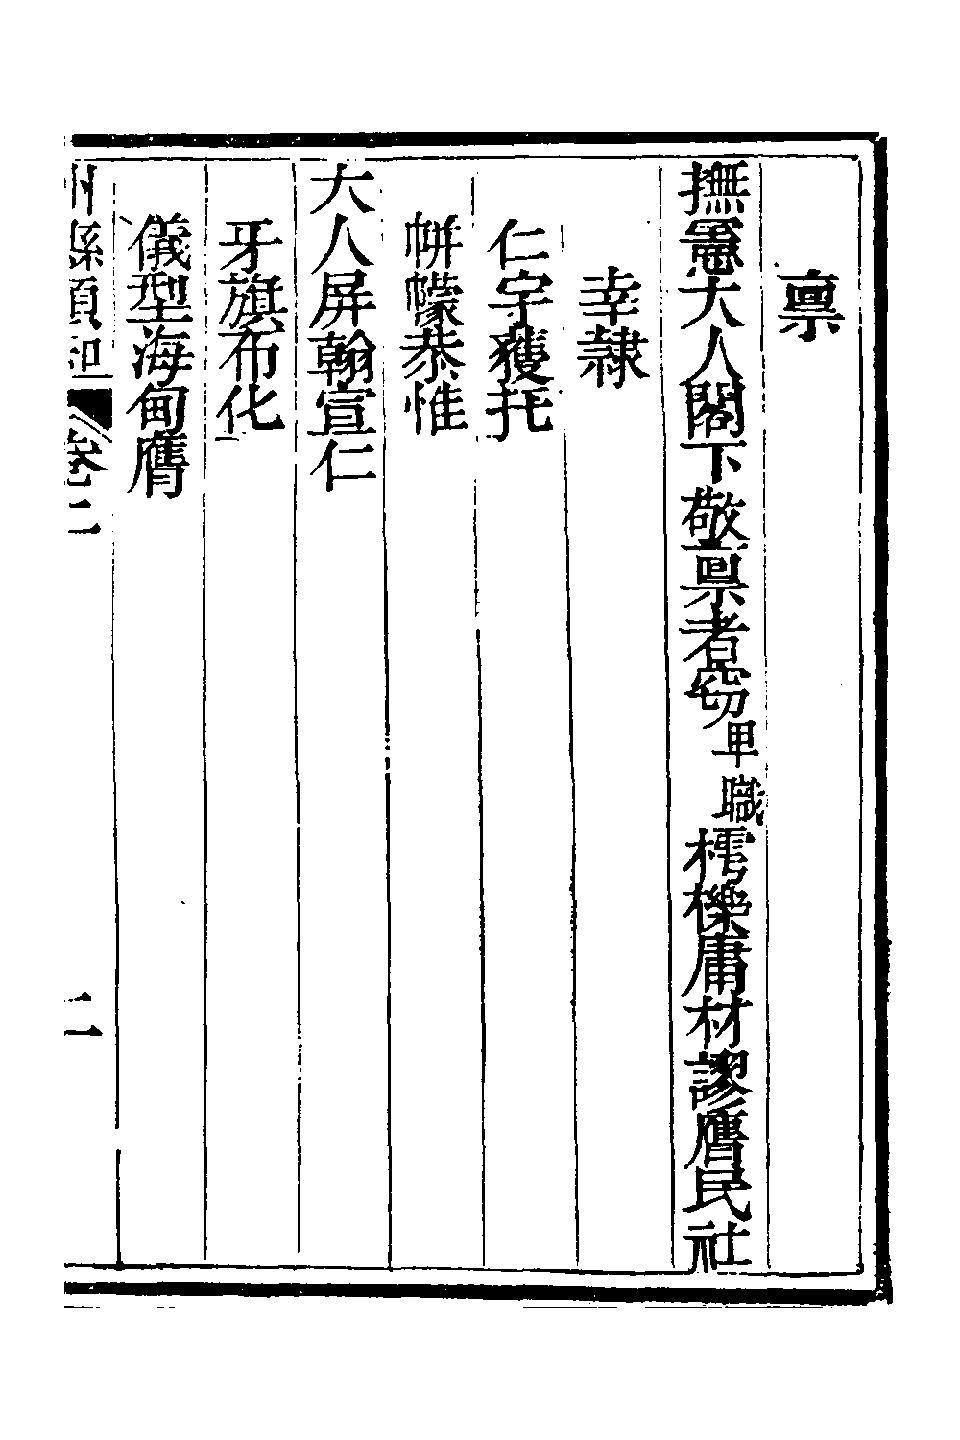 禀
撫憲大人閣下敬禀者竊卑職樗櫟庸材謬膺民社
幸隸
仁宇獲托
帡幪恭惟
大人屏翰宣仁
牙旗布化
儀型海甸膺
州縣須知 卷二 二